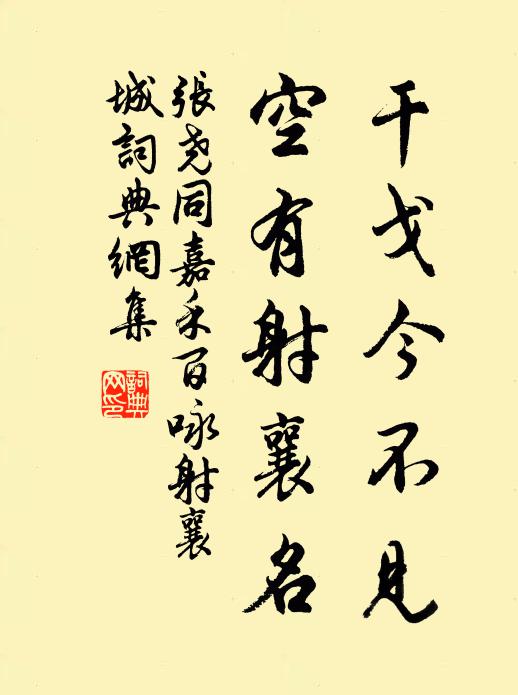 干戈今不見
空有射襄名
張堯同嘉禾百咏射襄
城詞典網集
詞典
网印